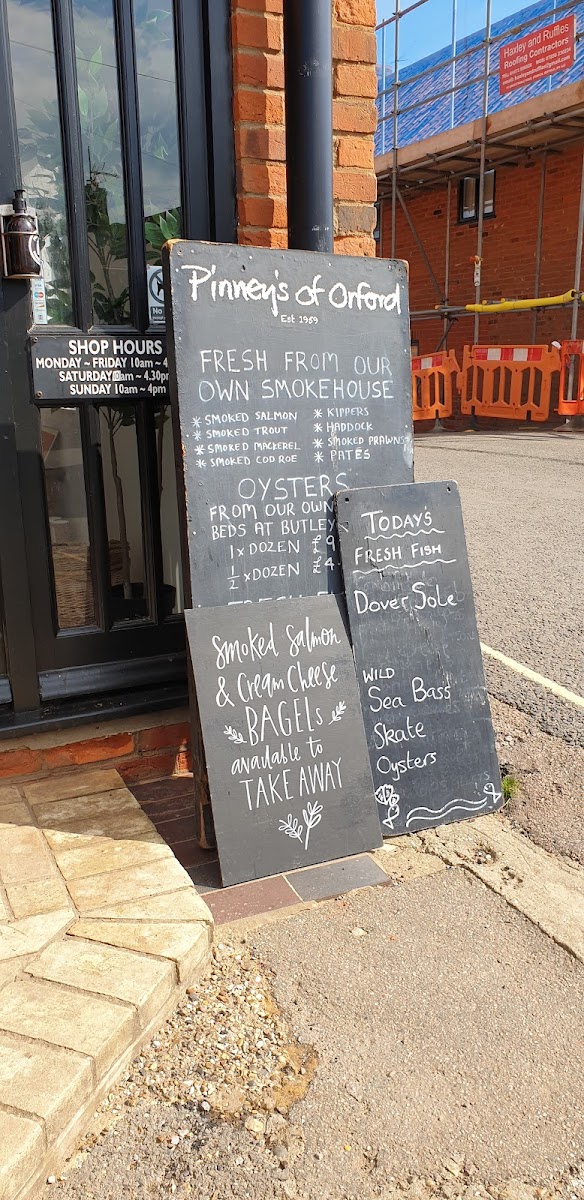 Haxley and Ruffles
Roofing Contractors
No
SHOP HOURS
MONDAY ~ FRIDAY 10am ~ 4
SATURDAY 9am ~ 4.30p
SUNDAY 10am ~ 4pm
Pinney's of Orford
Est 1959
FRESH FROM OUR
OWN SMOKEHOUSE
* SMOKED SALMON
* SMOKED TROUT
* SMOKED MACKEREL
* SMOKED COD ROE
* KIPPERS
* HADDOCK
* SMOKED PRAWNS
* PATÉS
OYSTERS
FROM OUR OWN
BEDS AT BUTLEY
1 x DOZEN £9
1/2 x DOZEN £4
Smoked Salmon
& Cream Cheese
BAGELS
available to
TAKE AWAY
TODAY'S
FRESH FISH
Dover Sole
WILD
Sea Bass
Skate
Oysters